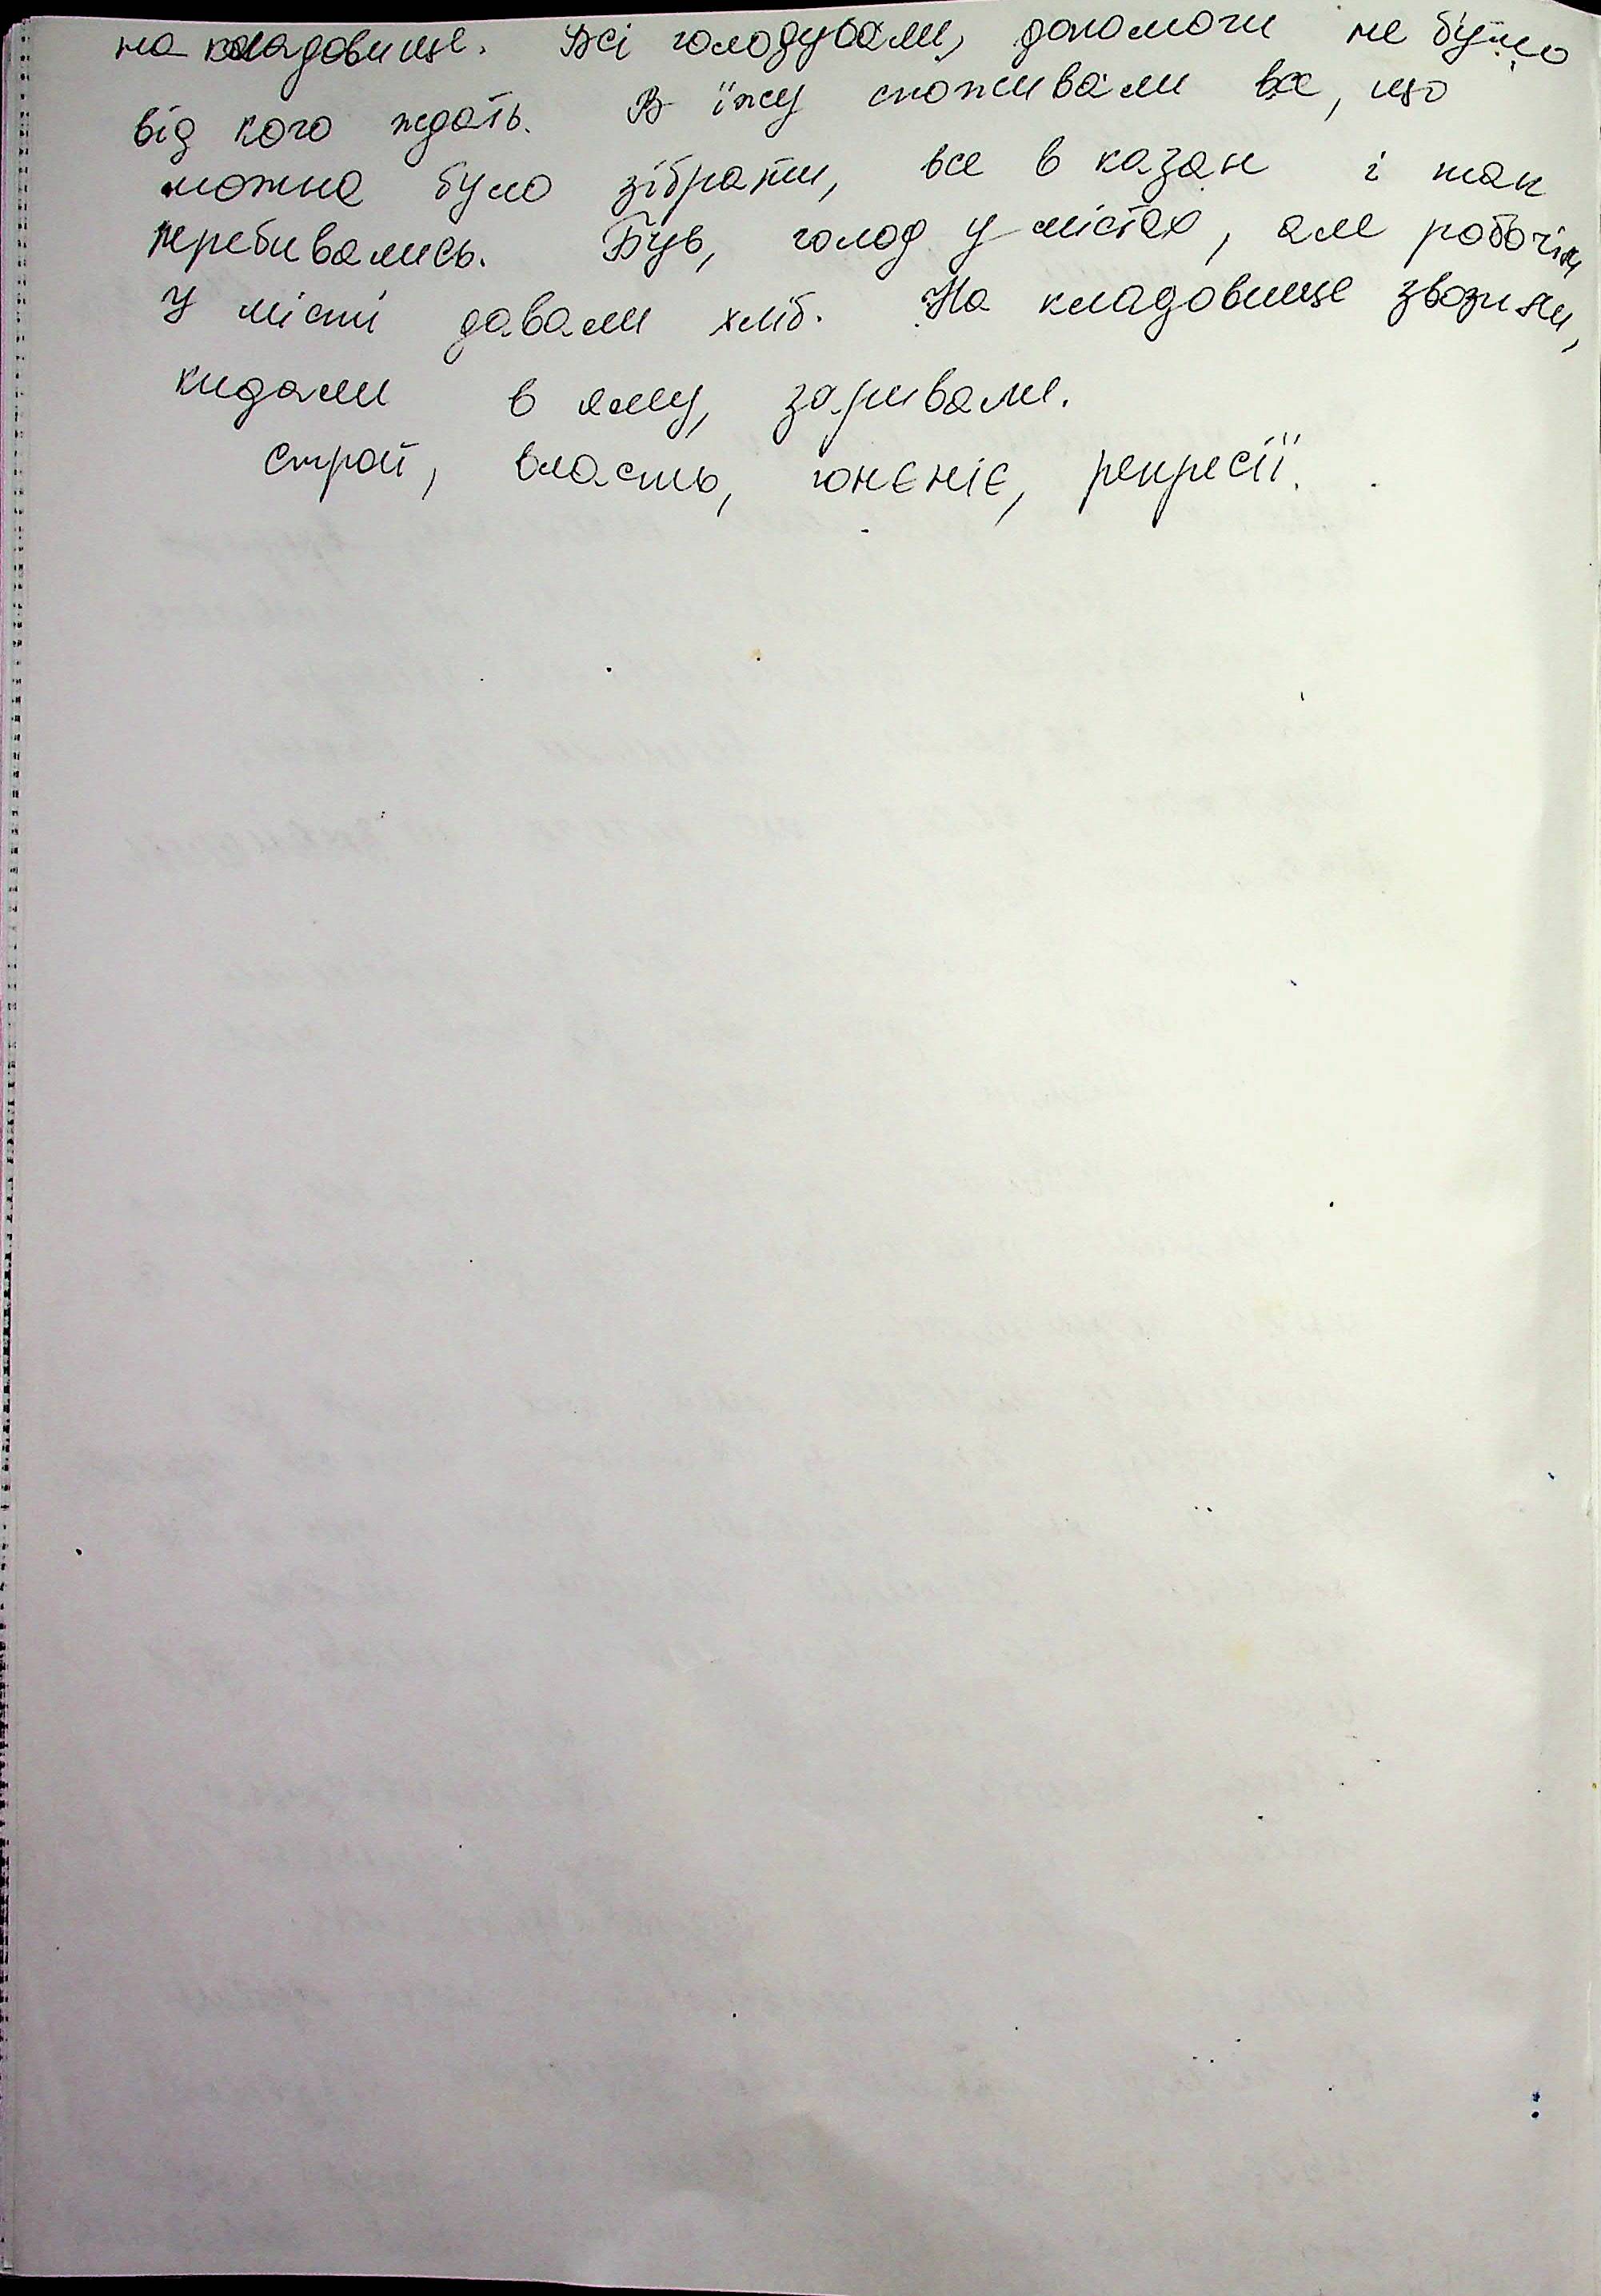 на кладовище. Всі голодували, допомоги не було
від кого ждать. В їжу споживали все, що
можна було зібрати, все в казан і так
перебивались. Був, голод у містах, але робочім
у місті давали хліб. На кладовище звозили,
кидали в яму, заривали.
строй, власть, гонєніє, репресії.